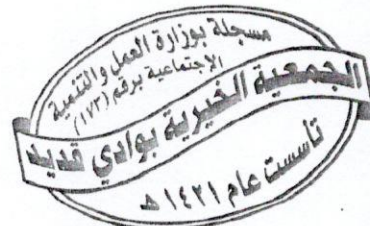 مسجلة بوزارة العمل والتنمية
الإجتماعية برقم (١٧٣)
الجمعية الخيرية بوادي قديد
تأسست عام ١٤٢١ هـ